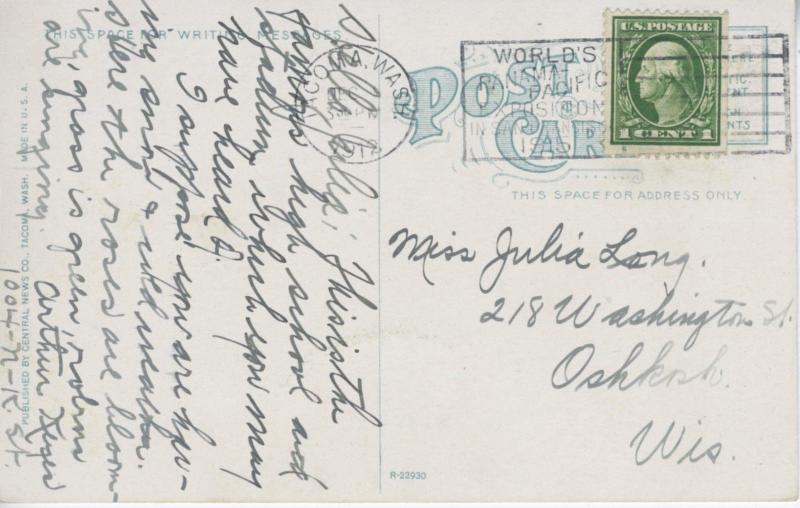 THIS SPACE FOR WRITING MESSAGES
Hello Julia; This is the
famous high school and
stadium which you may
have heard of.
I suppose you are hav-
ing snow & cold weather.
Here the roses are bloom-
ing, grass is green, robins
are singing.
Arthur
PUBLISHED BY CENTRAL NEWS CO., TACOMA, WASH. MADE IN U.S.A.
TACOMA, WASH.
DEC
191
WORLD'S
PANAMA
PACIFIC
EXPOSITION
IN SAN
1915
U.S. POSTAGE
1 CENT 1
POST
CARD
THIS SPACE FOR ADDRESS ONLY
Miss Julia Long.
218 Washington St.
Oshkosh.
Wis.
R-22930